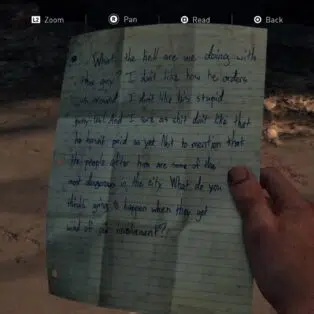 L2 Zoom R Pan Read Back
What the hell are we doing with
this guy? I don't like how he orders
us around. I don't like his stupid
pony-tail. And I sure as shit don't like that
he hasn't paid us yet. Not to mention that
the people after him are some of the
most dangerous in the city. What do you
think's going to happen when they get
wind of our involvement?!